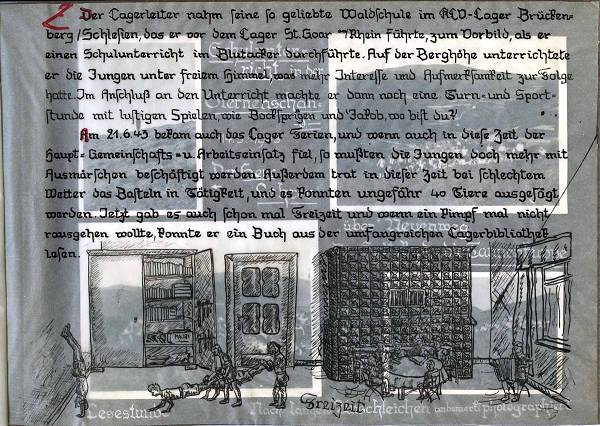 Der Lagerleiter nahm seine so geliebte Waldschule im KLV.-Lager Brücken-
berg/Schlesien, das er vor dem Lager St. Goar a/Rhein führte, zum Vorbild, als er
einen Schulunterricht im Blutacker durchführte. Auf der Berghöhe unterrichtete
er die Jungen unter freiem Himmel, was mehr Interesse und Aufmerksamkeit zur Folge
hatte. Im Anschluß an den Unterricht machte er dann noch eine Turn- und Sport-
stunde mit lustigen Spielen, wie Bockspringen und "Jakob, wo bist du?"
Am 21.6.43 bekam auch das Lager Ferien, und wenn auch in diese Zeit der
Haupt-Gemeinschafts- u. Arbeitseinsatz fiel, so mußten die Jungen doch mehr mit
Ausmärschen beschäftigt werden. Außerdem trat in dieser Zeit bei schlechtem
Wetter das Basteln in Tätigkeit, und es konnten ungefähr 40 Tiere ausgesägt
werden. Jetzt gab es auch schon mal Freizeit und wenn ein Pimpf mal nicht
rausgehen wollte, konnte er ein Buch aus der umfangreichen Lagerbibliothek
lesen.
Lesestunde
Freizeit
Nach langem Schleichen unbemerkt photographiert